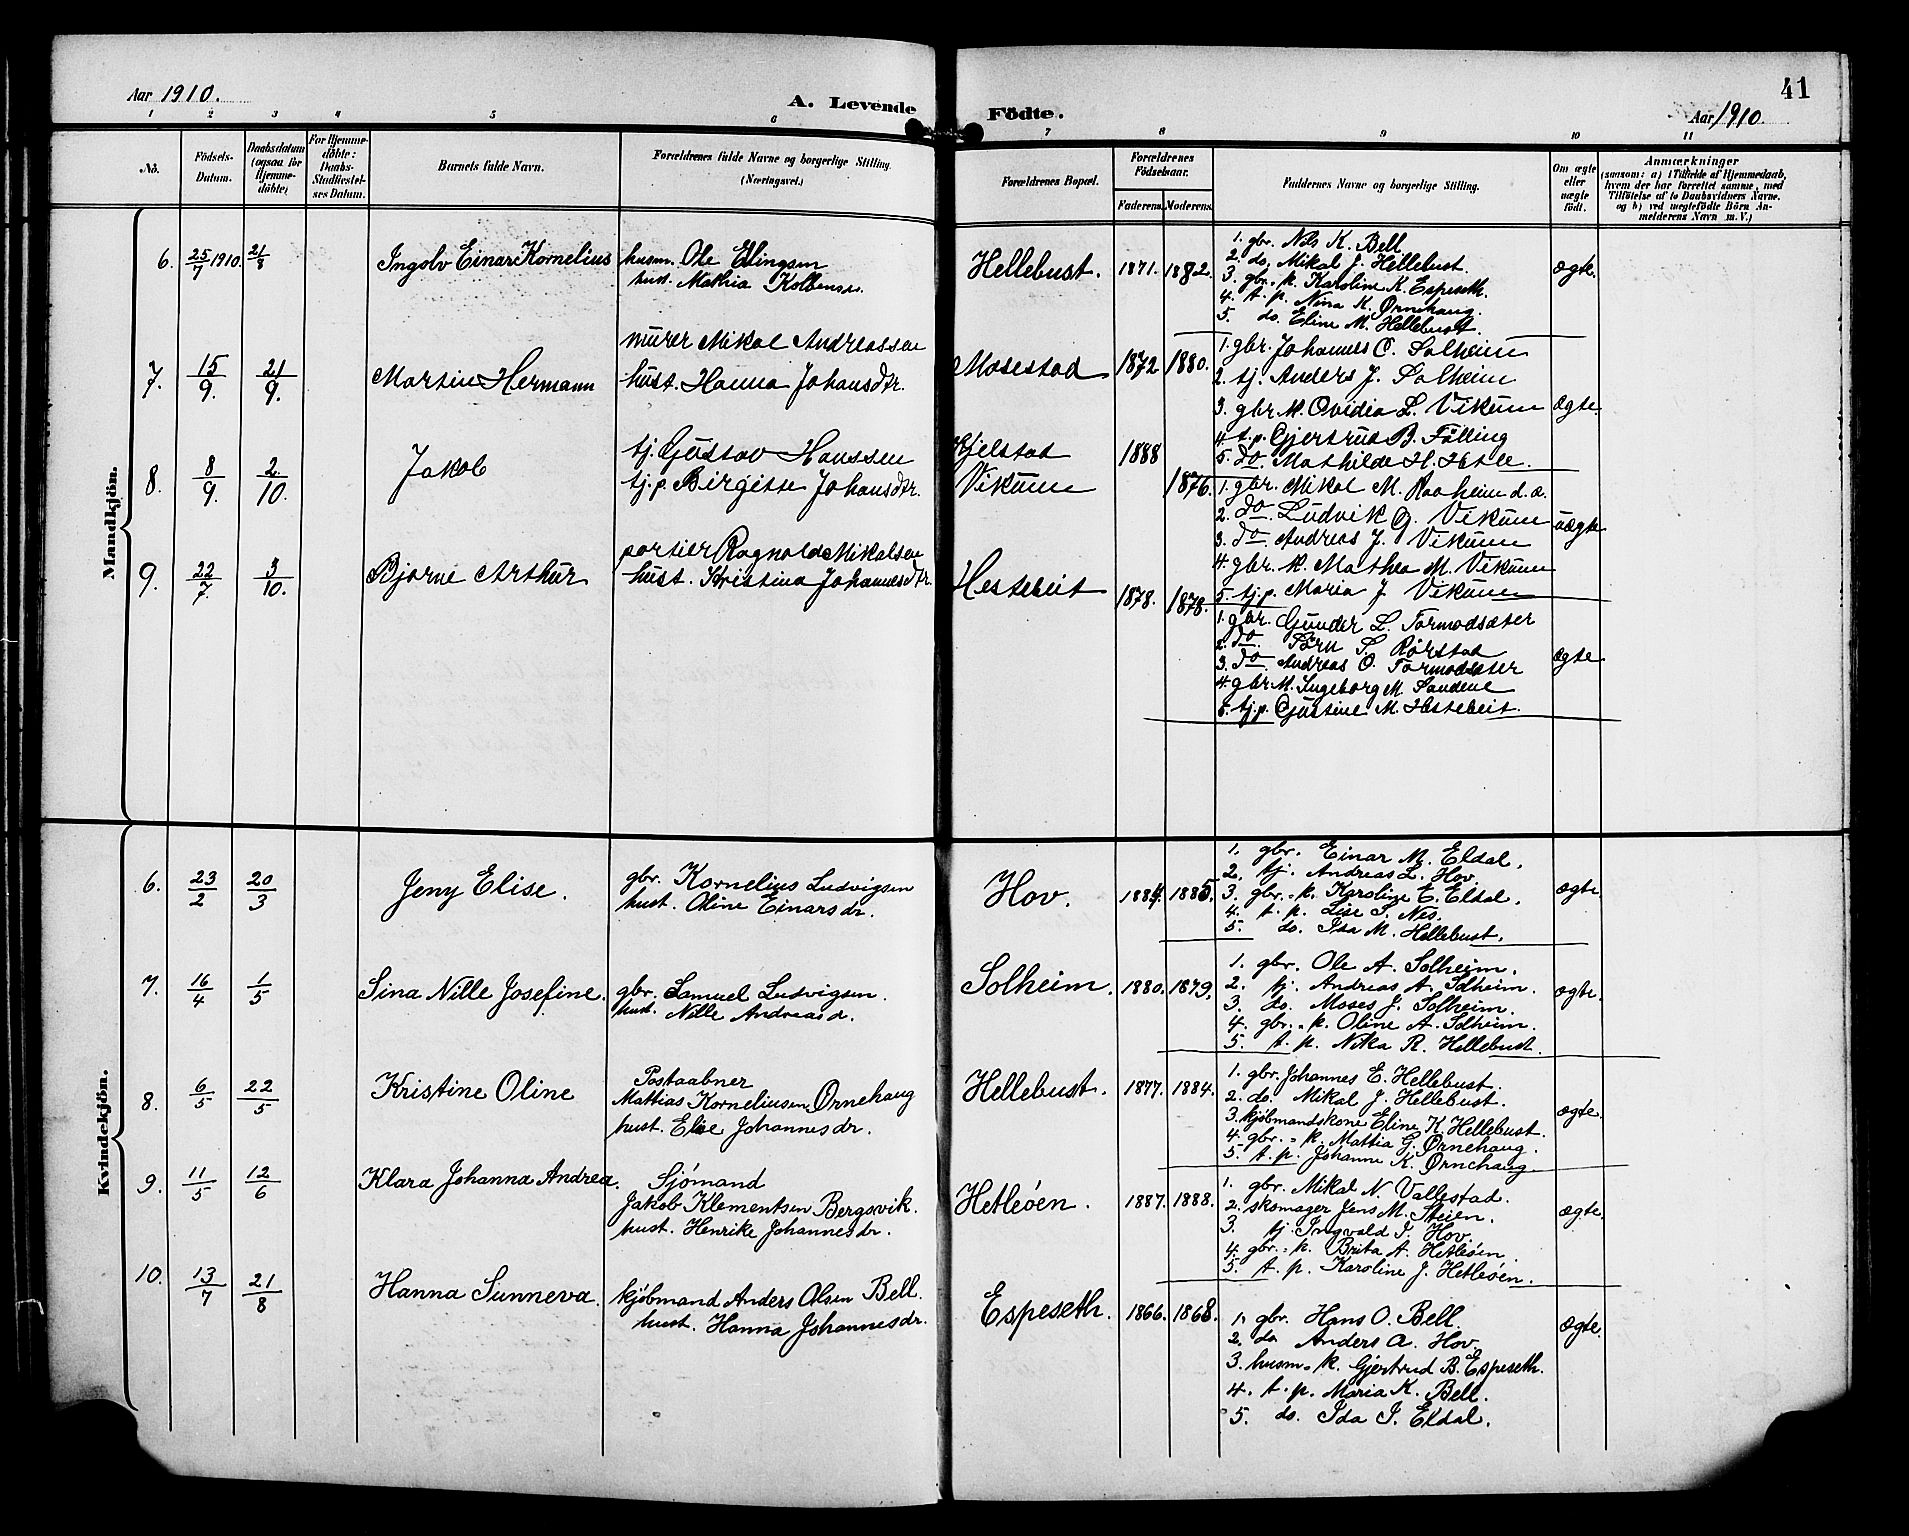 41
Aar 1910.
A. Levende Födte.
Aar 1910.
1 2 3 4 5 6 7 8 9 10 11
No.
Födsels-
Datum.
Daabsdatum
(ogsaa for
Hjemme-
döbte)
For Hjemme-
döbte:
Daabs-
Stadfæstel-
ses Datum.
Barnets fulde Navn.
Forældrenes fulde Navne og borgerlige Stilling.
(Næringsvei.)
Forældrenes Bopæl.
Forældrenes
Födselsaar.
Faderens. Moderens.
Faddernes Navne og borgerlige Stilling.
Om ægte
eller
uægte
født.
Anmærkninger
(saasom: a) i Tilfælde af Hjemmedaab,
hvem der har forrettet samme, med
Tilföielse af to Daabsvidners Navne.
og b) ved uegtefödte Börn An-
melderens Navn m.V.)
Mandkjön.
6. 25/7 1910. 21/8 Ingolv Einar Kornelius
husm. Ole Elingsen
hust. Mathia Kolbensdr.
Hellebust. 1871. 1882.
1. gbr. Nils K. Bell
2. do. Mikal J. Hellebust.
3. gbr.-k. Karoline K. Espeseth.
4. t. p. Nina K. Ørnehaug.
5. do. Eline M. Hellebust.
ægte.
7. 15/9. 21/9. Martin Hermann
murer Mikal Andreassen
hust. Hanna Johansdtr.
Mosestad 1872 1880.
1. gbr. Johannes O. Solheim
2. tj. Anders J. Solheim
3. gbr. k. Ovidia L. Vikum
4. t.p. Gjertrud B. Fölling
5. do. Mathilde H. Hetle.
ægte.
8. 8/9. 2/10. Jakob
tj. Gustav Hanssen
tj.p. Birgitte Johansdtr.
Hjelstad 1888
Vikum 1876.
1. gbr. Mikal M. Raaheim d.æ.
2. do. Ludvik G. Vikum
3. do. Andreas J. Vikum
4. gbr. k. Mathea M. Vikum
5. tj.p. Maria J Vikum
uægte
9. 22/7. 3/10. Bjarne Arthur
portier Ragnald Mikalsen
hust. Kristina Johannesdtr.
Hestebeit 1878. 1878.
1. gbr. Gunder L. Tormodsæter
2. do. Törn S. Rörstad
3. do. Andreas O. Tormodsæter
4. gbr. k. Ingeborg M. Sandene
5. tj.p. Gjustine M. Hestebeit.
ægte
Kvindekjön.
6. 23/2 20/3 Jeny Elise.
gbr. Kornelius Ludvigsen
hust. Oline Einarsdr.
Hov. 1884. 1885.
1. gbr. Einar M. Eldal.
2. tj. Andreas L. Hov.
3. gbr.-k. Karoline E. Eldal.
4. t. p. Lise S. Nes.
5. do. Ida M. Hellebust.
ægte.
7. 16/4 1/5 Sina Nille Josefine.
gbr. Samuel Ludvigsen.
hust. Nille Andreasd.
Solheim. 1880. 1879.
1. gbr. Ole A. Solheim.
2. tj. Andreas A. Solheim.
3. do. Moses J. Solheim.
4. gbr.-k. Oline A. Solheim.
5. t. p. Nika R. Hellebust.
ægte.
8. 6/5 22/5 Kristine Oline
Postaabner
Mattias Korneliusen Ørnehaug
hust. Elise Johannesdr.
Hellebust. 1877. 1884.
1. gbr. Johannes E. Hellebust.
2. do. Mikal J. Hellebust.
3. kjøbmandskone Eline K. Hellebust.
4. gbr.-k. Mattia G. Ørnehaug.
5. t. p. Johanne K. Ørnehaug
ægte.
9. 11/5 12/6 Klara Johanna Andrea.
Sjömand
Jakob Klementsen Bergsvik.
hust. Henrike Johannesdr.
Hetleöen. 1887. 1888.
1. gbr. Mikal N. Vallestad.
2. skomager Jens M. Steien.
3. tj. Ingvald I. Hov.
4. gbr.-k. Brita A. Hetleöen.
5. t. p. Karoline J. Hetleöen.
ægte.
10. 13/7 21/8 Hanna Sunneva.
kjøbmand Anders Olsen Bell.
hust. Hanna Johannesdr.
Espeseth. 1866. 1868.
1. gbr. Hans O. Bell.
2. do Anders A. Hov.
3. husm.-k. Gjertrud B. Espeseth.
4. t. p. Maria K. Bell.
5. do. Ida I. Eldal.
ægte.